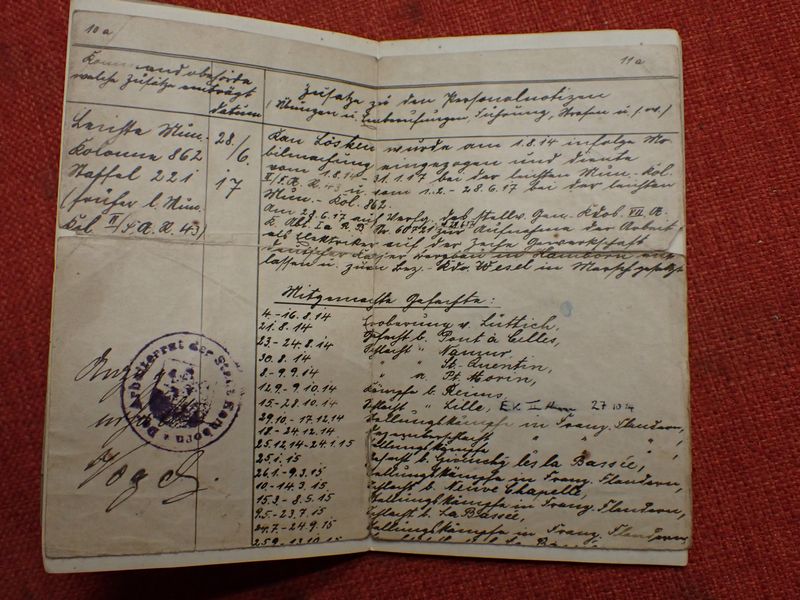 10a
11a
Kommandobehörde
welche Zusätze einträgt
Datum
Zusätze zu den Personalnotizen
(Übungen u. Einberufungen, Führung, Strafen u.s.w.)
Leichte Mun.-
Kolonne 862
Staffel 221
(früher l. Mun.
Kol. II/F.A.R. 43)
28./
6.
17
Kan. Lösken wurde am 1.8.14 infolge Mo-
bilmachung eingezogen und diente
vom 1.8.14 - 31.1.17 bei der leichten Mun.-Kol.
II/F.A.R. 43 u. vom 1.2. - 28.6.17 bei der leichten
Mun.-Kol. 862.
Am 28.6.17 auf Verfg. des stellv. Gen. Kdos. VII. A.
K. Abt. Ia zur Aufnahme der Arbeit
als Elektriker auf der Zeche Gewerkschaft
deutscher Kaiser in Hamborn ent-
lassen u. zum Bez.-Kdo. Wesel in Marsch gesetzt
Mitgemachte Gefechte:
4.-16.8.14 Eroberung v. Lüttich,
21.8.14 Gefecht b. Pont à Celles,
23.-24.8.14 Schlacht " Namur,
30.8.14 " " St. Quentin,
8.-9.9.14 " a. Pt. Morin,
12.9.-9.10.14 Kämpfe b. Reims,
15.-28.10.14 Schlacht " Lille, 27 10 14
29.10.-17.12.14 Stellungskämpfe in Franz. Flandern,
18.-24.12.14 Dezemberschlacht " " "
25.12.14-24.1.15 Stellungskämpfe " " "
25.1.15 Gefecht b. Givenchy lès la Bassée,
26.1.-9.3.15 Stellungskämpfe in Franz. Flandern,
10.-14.3.15 Schlacht b. Neuve Chapelle,
15.3.-8.5.15 Stellungskämpfe in Franz. Flandern,
9.5.-23.7.15 Schlacht b. La Bassée,
24.7.-24.9.15 Stellungskämpfe in Franz. Flandern
25.9.-13.10.15
Der Arbeiterrat der Stadt Hamborn